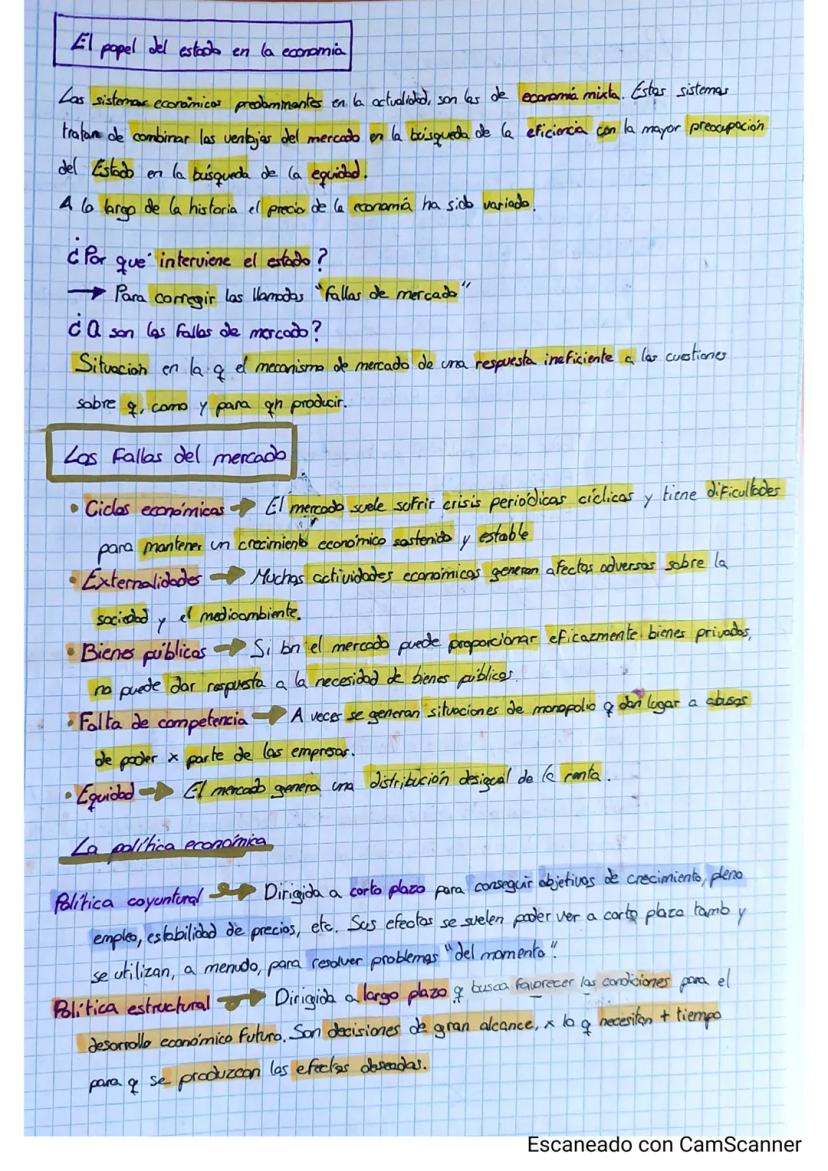 El papel del estado en la economía
Los sistemas económicos predominantes en la actualidad, son los de economía mixta. Estos sistemas
tratan de combinar las ventajas del mercado en la búsqueda de la eficiencia con la mayor preocupación
del Estado en la búsqueda de la equidad.
A lo largo de la historia el precio de la economía ha sido variado.
¿Por qué interviene el estado?
→ Para corregir las llamadas "fallas de mercado"
¿Q son las fallas de mercado?
Situación en la q el mecanismo de mercado da una respuesta ineficiente a las cuestiones
sobre q, como y para qn producir.
Las Fallas del mercado
• Ciclos económicos → El mercado suele sufrir crisis periódicas cíclicas y tiene dificultades
para mantener un crecimiento económico sostenido y estable
• Externalidades → Muchas actividades económicas generan efectos adversos sobre la
sociedad y el medioambiente.
• Bienes públicos → Si bn el mercado puede proporcionar eficazmente bienes privados,
no puede dar respuesta a la necesidad de bienes públicos.
• Falta de competencia → A veces se generan situaciones de monopolio q dan lugar a abusos
de poder x parte de las empresas.
• Equidad → El mercado genera una distribución desigual de la renta.
La política económica
Política coyuntural → Dirigida a corto plazo para conseguir objetivos de crecimiento, pleno
empleo, estabilidad de precios, etc. Sus efectos se suelen poder ver a corto plazo tamb y
se utilizan, a menudo, para resolver problemas "del momento".
Política estructural → Dirigida a largo plazo q busca favorecer las condiciones para el
desarrollo económico futuro. Son decisiones de gran alcance, x lo q necesitan + tiempo
para q se produzcan los efectos deseados.
Escaneado con CamScanner